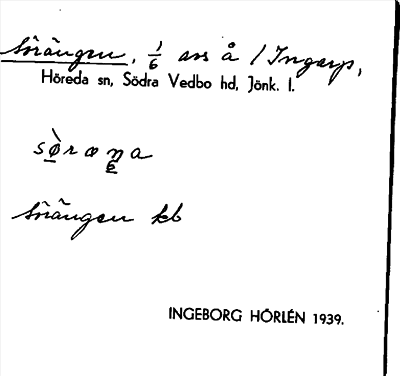 Sörängen, 1/6 av å / Ingarp,
Höreda sn, Södra Vedbo hd, Jönk. l.
søræŋa
Sörängen kb
INGEBORG HÖRLÉN 1939.